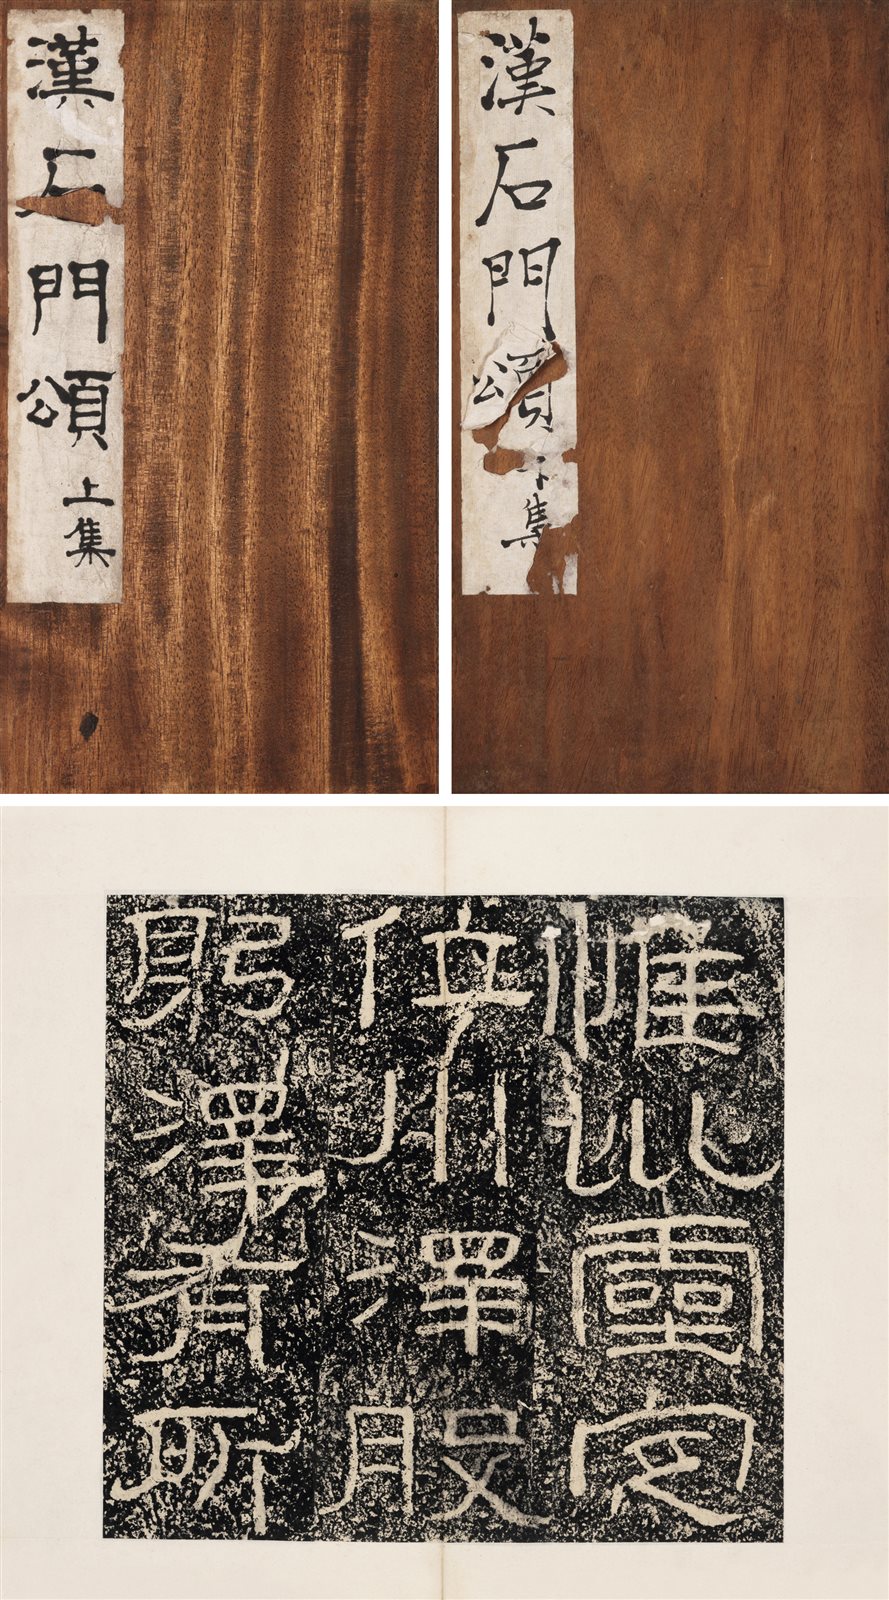 漢石門頌
上集
漢石門頌
下集
惟巛靈定
位川澤股
躬澤有所